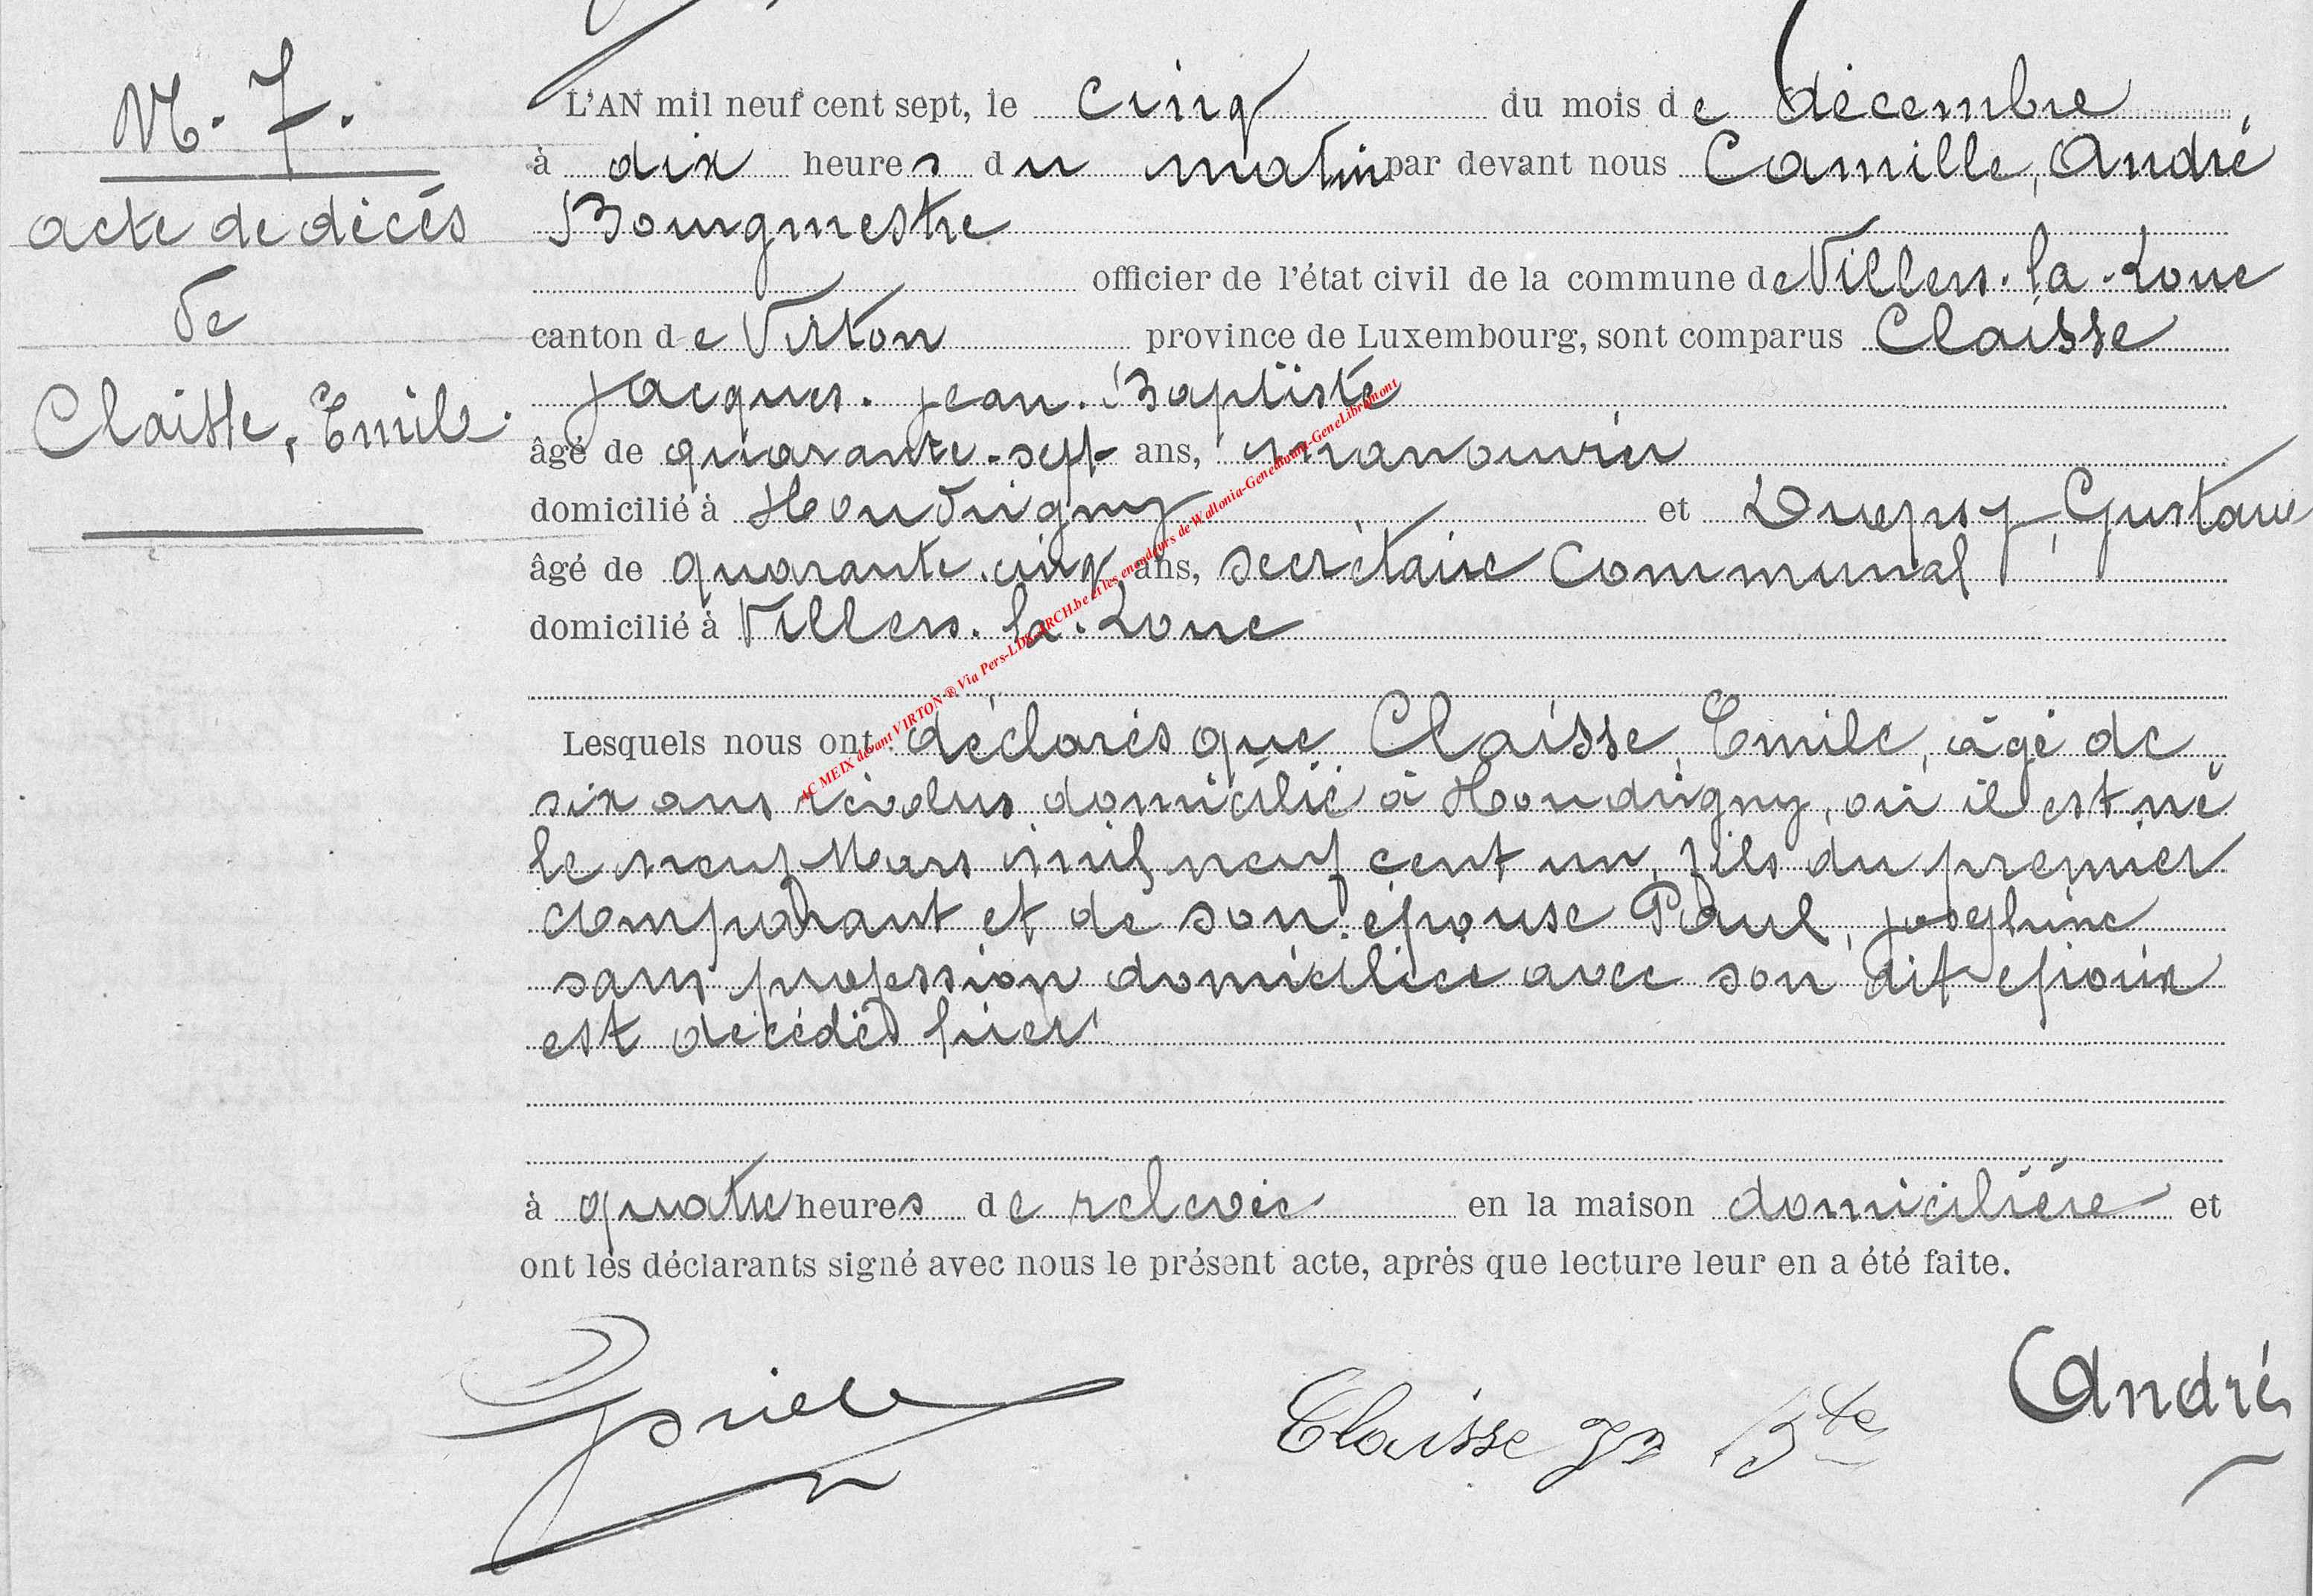 N. 7.
acte de décès
de
Claisse, Emile.
L'AN mil neuf cent sept, le cinq du mois de décembre
à dix heures du matin par devant nous Camille, André
Bourgmestre
officier de l'état civil de la commune de Villers-la-Loue
canton de Virton province de Luxembourg, sont comparus Claisse
Jacques. Jean. Baptiste
âgé de quarante-sept ans, manouvrier
domicilié à Houdrigny et Gustave
âgé de quarante-cinq ans, secrétaire communal
domicilié à Villers-la-Loue
Lesquels nous ont déclarés que Claisse, Emile, âgé de
six ans révolus domicilié à Houdrigny, où il est né
le neuf Mars mil neuf cent un, fils du premier
comparant et de son épouse Paul, Joséphine
sans profession domiciliée avec son dit époux
est décédé hier
à quatre heures de relevée en la maison domicilière et
ont les déclarants signé avec nous le présent acte, après que lecture leur en a été faite.
Claisse Jn Bte
André
AC MEIX devant VIRTON ® Via Pers-LDK-ARCH.be et les encodeurs de Wallonia-Genedinant-GeneLibramont